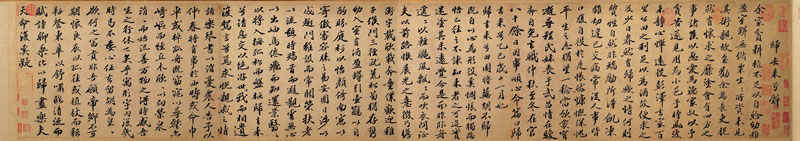 歸去來兮辭
余家貧耕植不足以自給幼稚
盈室缾無儲粟生生所資未見
其術親故多勸余為長吏脫
然有懷求之靡途會有四方之
事諸侯以惠愛為德家叔以余
貧苦遂見用為小邑于時風波
未靜心憚遠役彭澤去家百
里公田之利足以為酒故便求之
及少日眷然有歸歟之情何則
質性自然非矯勵所得飢凍
雖切違己交病嘗從人事皆
口腹自役於是悵然慷慨深愧
平生之志猶望一稔當斂裳宵
逝尋程氏妹喪于武昌情在駿
奔自免去職仲秋至冬在官八
十餘日因事順心命篇曰歸去
來兮乙巳歲十一月也
歸去來兮田園將蕪胡不歸
既自以心為形役奚惆悵而獨悲
悟已往之不諫知來者之可追實
迷途其未遠覺今是而昨非舟
遙遙以輕颺風飄飄而吹衣問征
夫以前路恨晨光之熹微乃瞻
衡宇載欣載奔僮僕歡迎稚
子候門三逕就荒松菊猶存攜
幼入室有酒盈罇引壺觴以自
酌眄庭柯以怡顏倚南窗以
寄傲審容膝之易安園日涉以
成趣門雖設而常關策扶老
以流憩時矯首而遐觀雲無心
以出岫鳥倦飛而知還景翳翳
以將入撫孤松而盤桓歸去來
兮請息交以絕游世與我而相遺
復駕言兮焉求悅親戚之情
話樂琴書以消憂農人告予以
春及將有事乎西疇或命巾
車或棹孤舟既窈窕以尋壑亦
崎嶇而經丘木欣欣以向榮泉涓
涓而始流善萬物之得時感吾
生之行休已矣乎寓形宇內復幾
時曷不委心任去留胡為遑遑
欲何之富貴非吾願帝鄉不可
期懷良辰以孤往或植杖而耘
耔登東皋以舒嘯臨清流而
賦詩聊乘化以歸盡樂夫
天命復奚疑